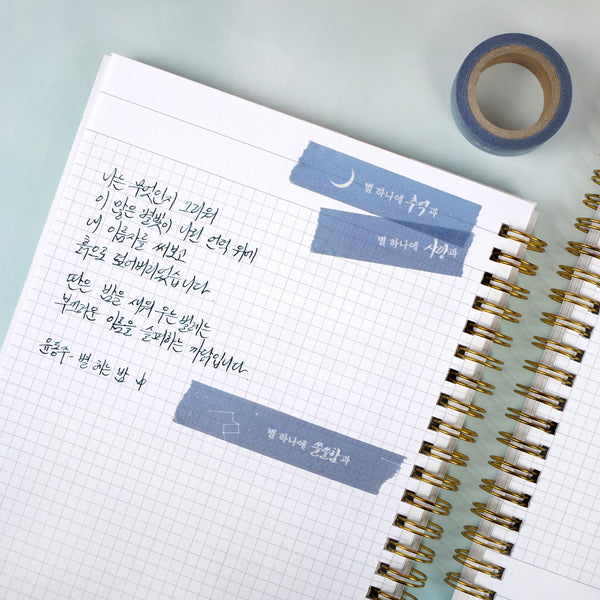 별 하나에 추억과
별 하나에 사랑과
나는 무엇인지 그리워
이 많은 별빛이 나린 언덕 위에
내 이름자를 써보고
흙으로 덮어버리었습니다.
딴은 밤을 새워 우는 벌레는
부끄러운 이름을 슬퍼하는 까닭입니다.
윤동주 - 별 헤는 밤
별 하나에 쓸쓸함과